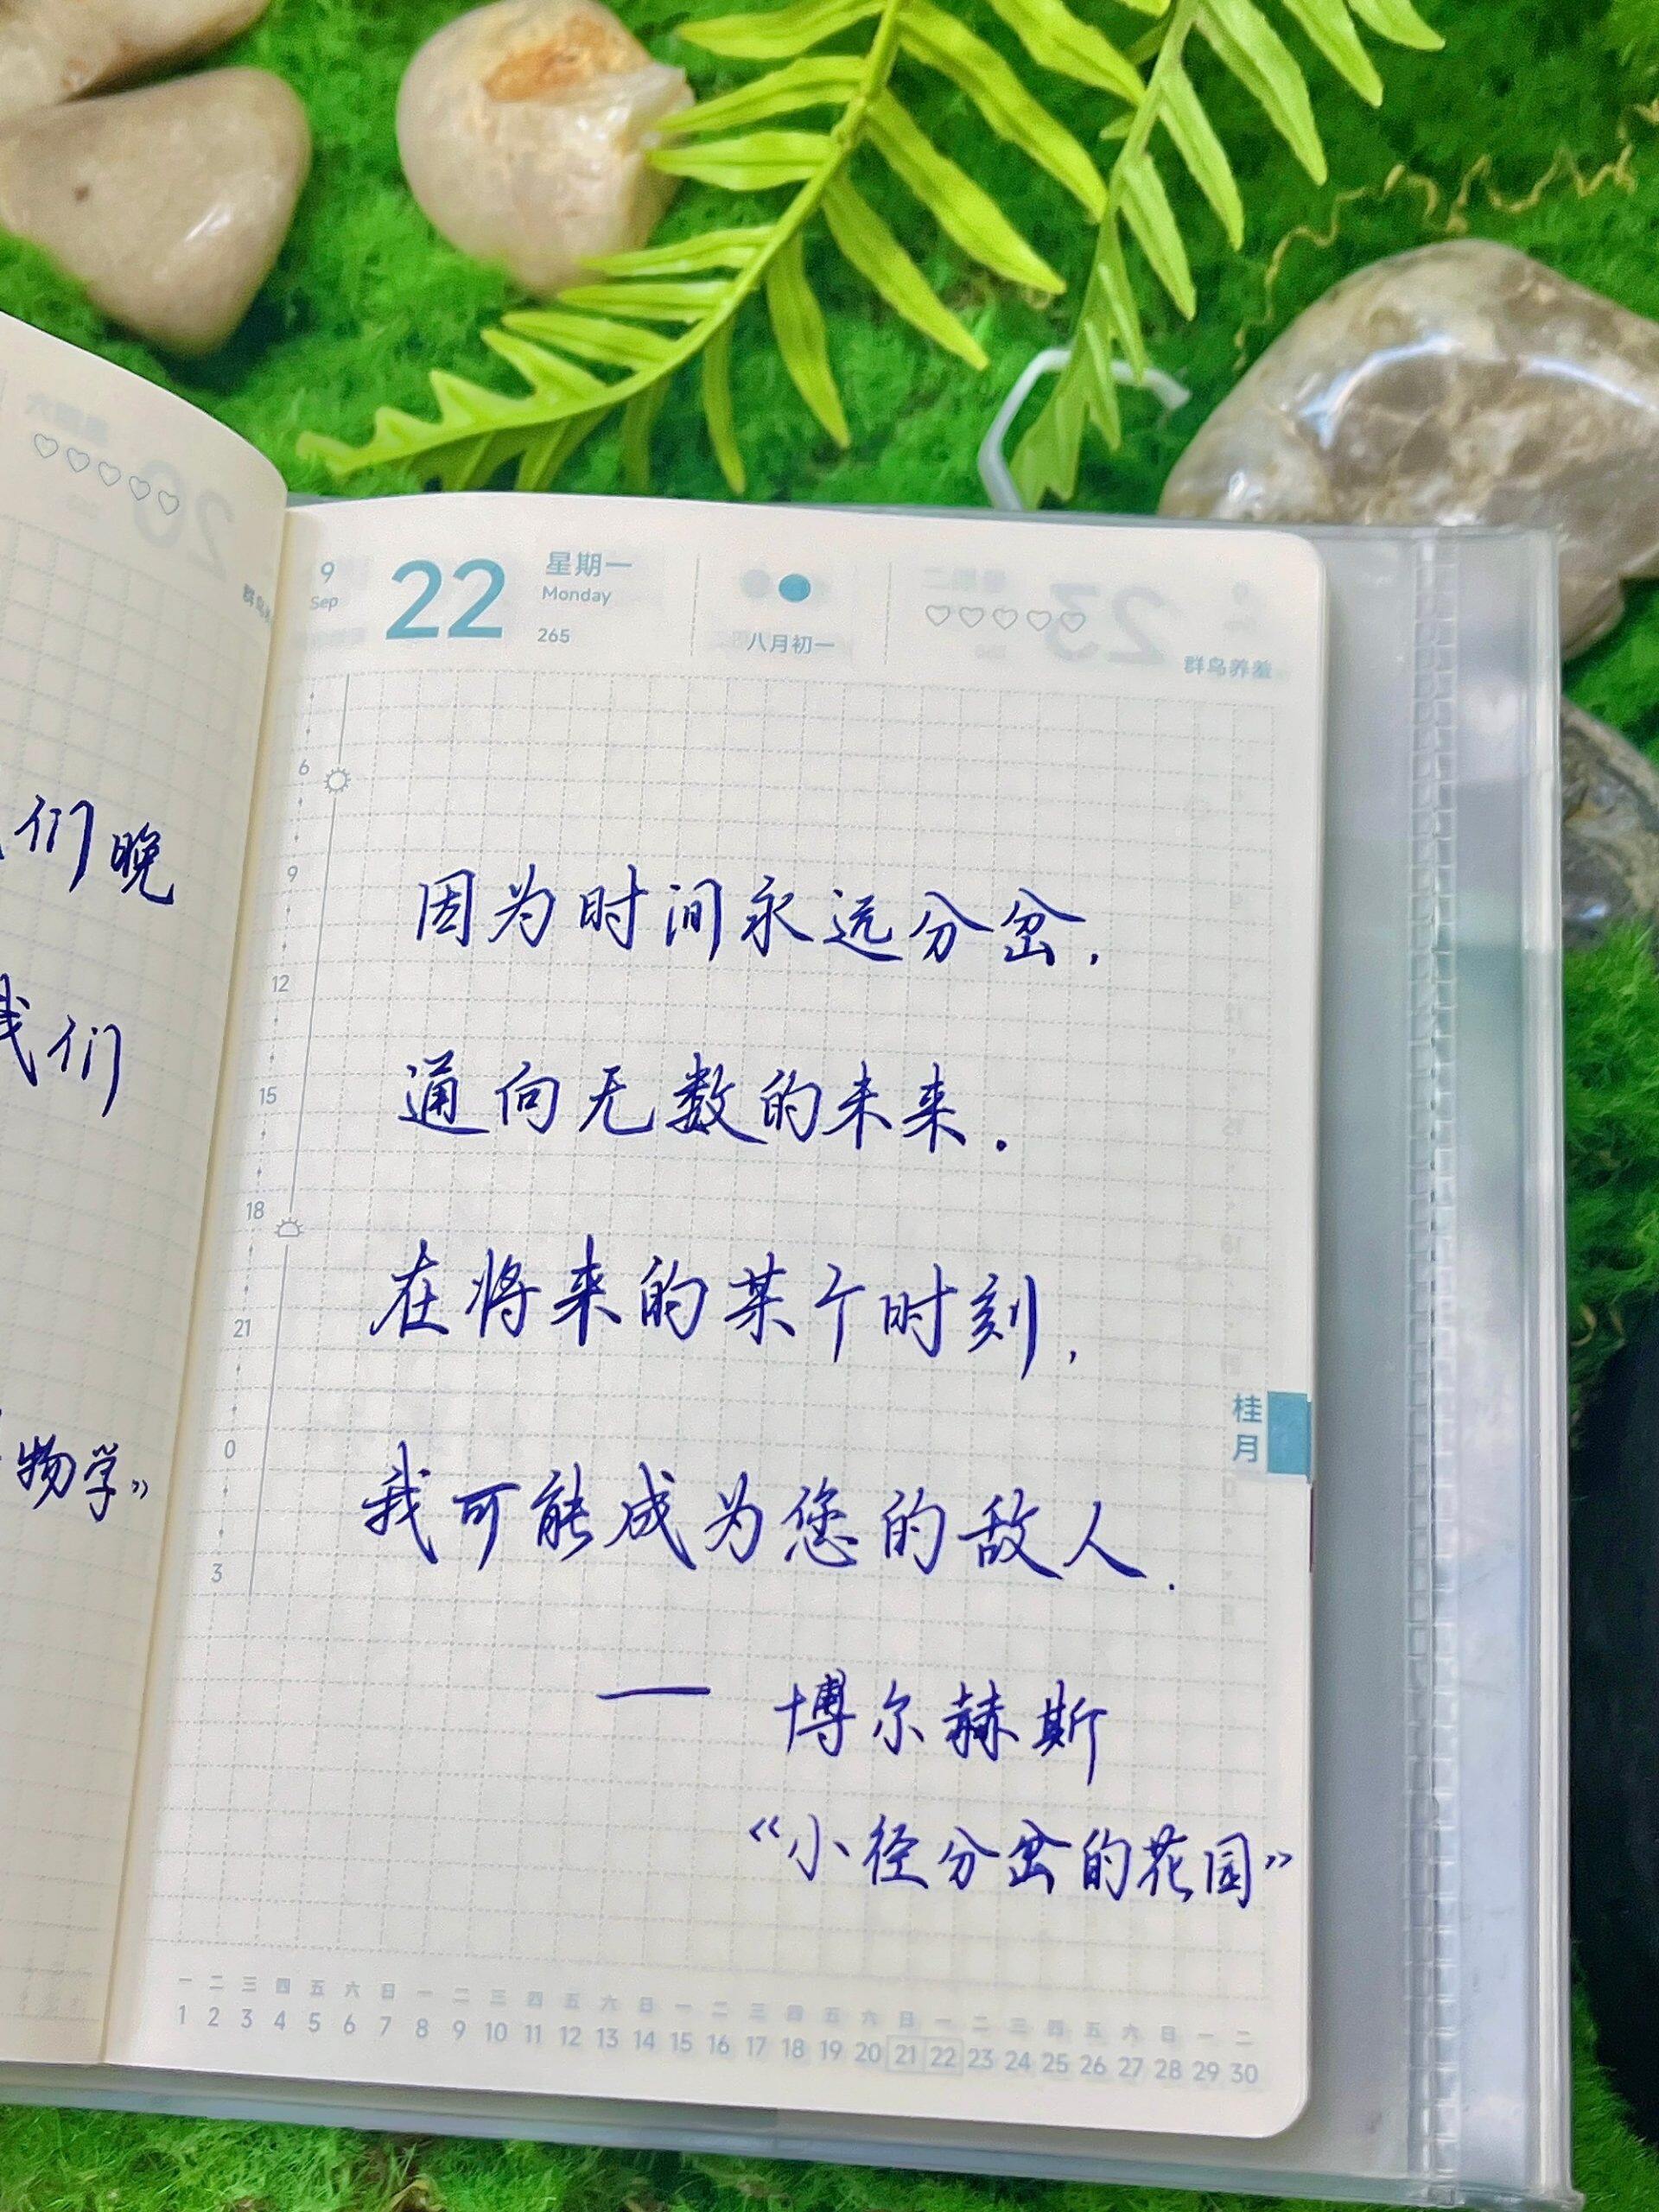 们晚
我们
物学》
9
Sep
22
星期一
Monday
265
八月初一
群鸟养羞
6
9
12
15
18
21
0
3
因为时间永远分岔，
通向无数的未来．
在将来的某个时刻，
我可能成为您的敌人．
— 博尔赫斯
《小径分岔的花园》
桂月
一 二 三 四 五 六 日 一 二 三 四 五 六 日 一 二 三 四 五 六 日 一 二 三 四 五 六 日 一 二
1 2 3 4 5 6 7 8 9 10 11 12 13 14 15 16 17 18 19 20 21 22 23 24 25 26 27 28 29 30